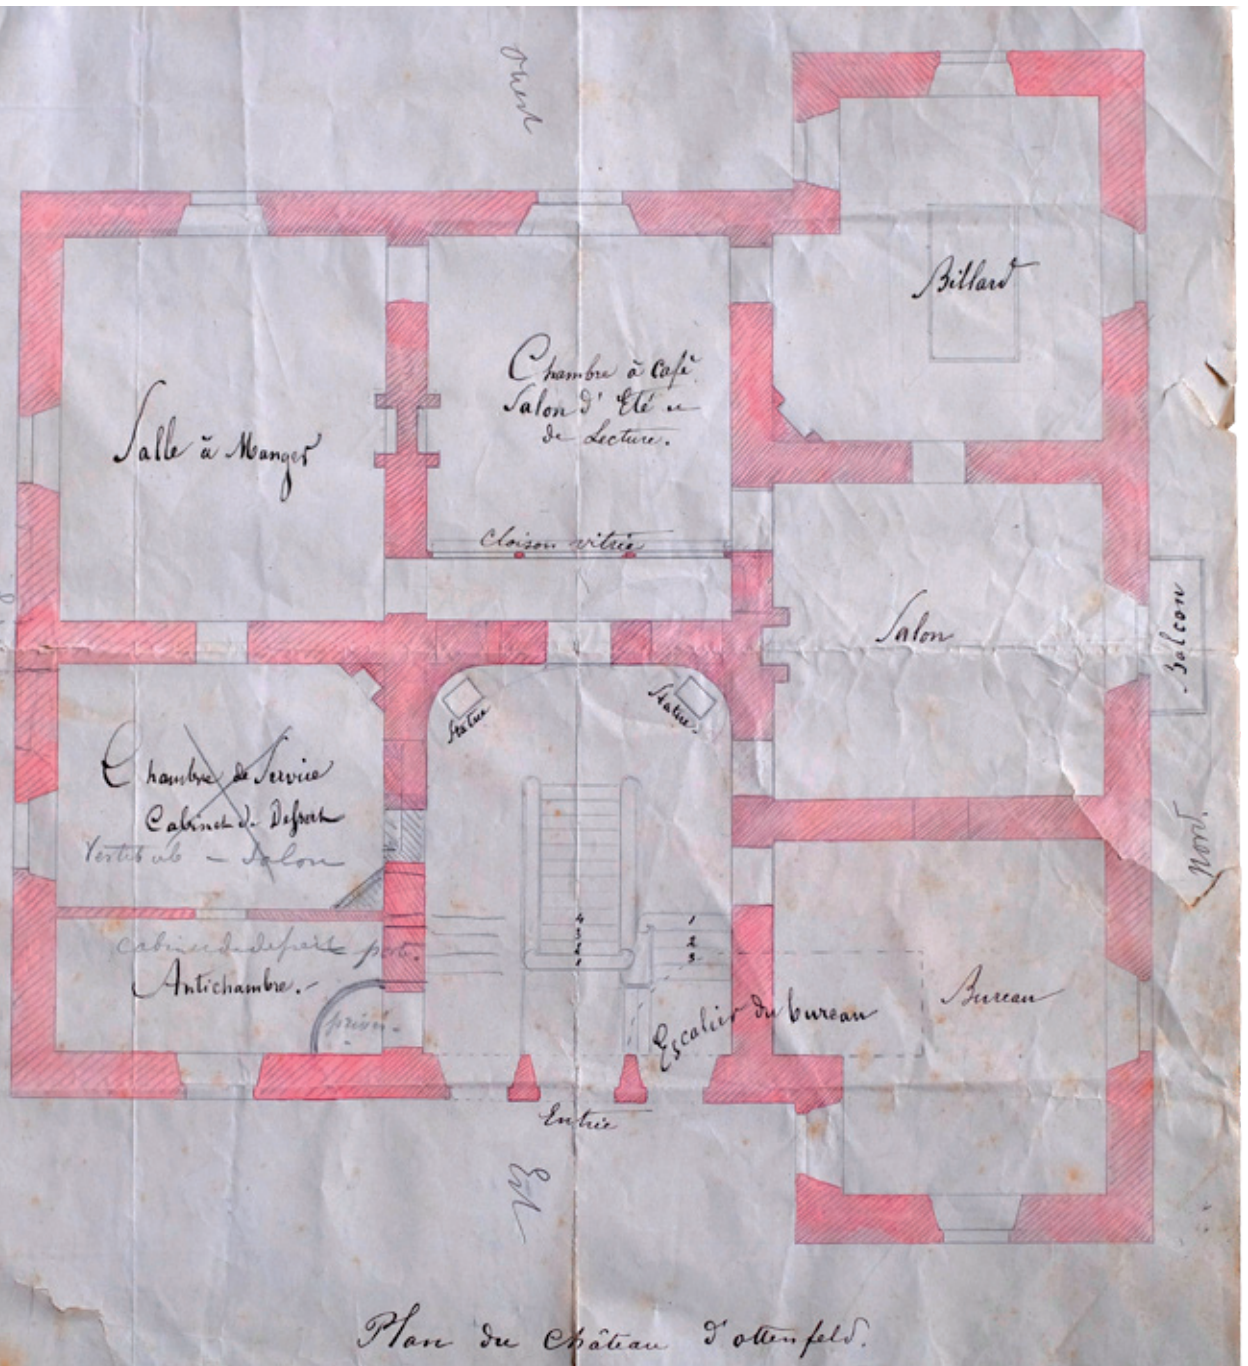 Ouest
Billard
Chambre à Café
Salon d'Eté et
de Lecture.
Salle à Manger
Cloison vitrée
Salon
Balcon
Statue
Statue.
Chambre de Service
Cabinet de Dessert
Vestibule - Salon
Nord
4
3
2
1
1
2
3
cabinet de dessert porte.
Antichambre.
privé.
Bureau
Escalier du bureau
Entrée
Est
Plan du Château d'ottenfeld.